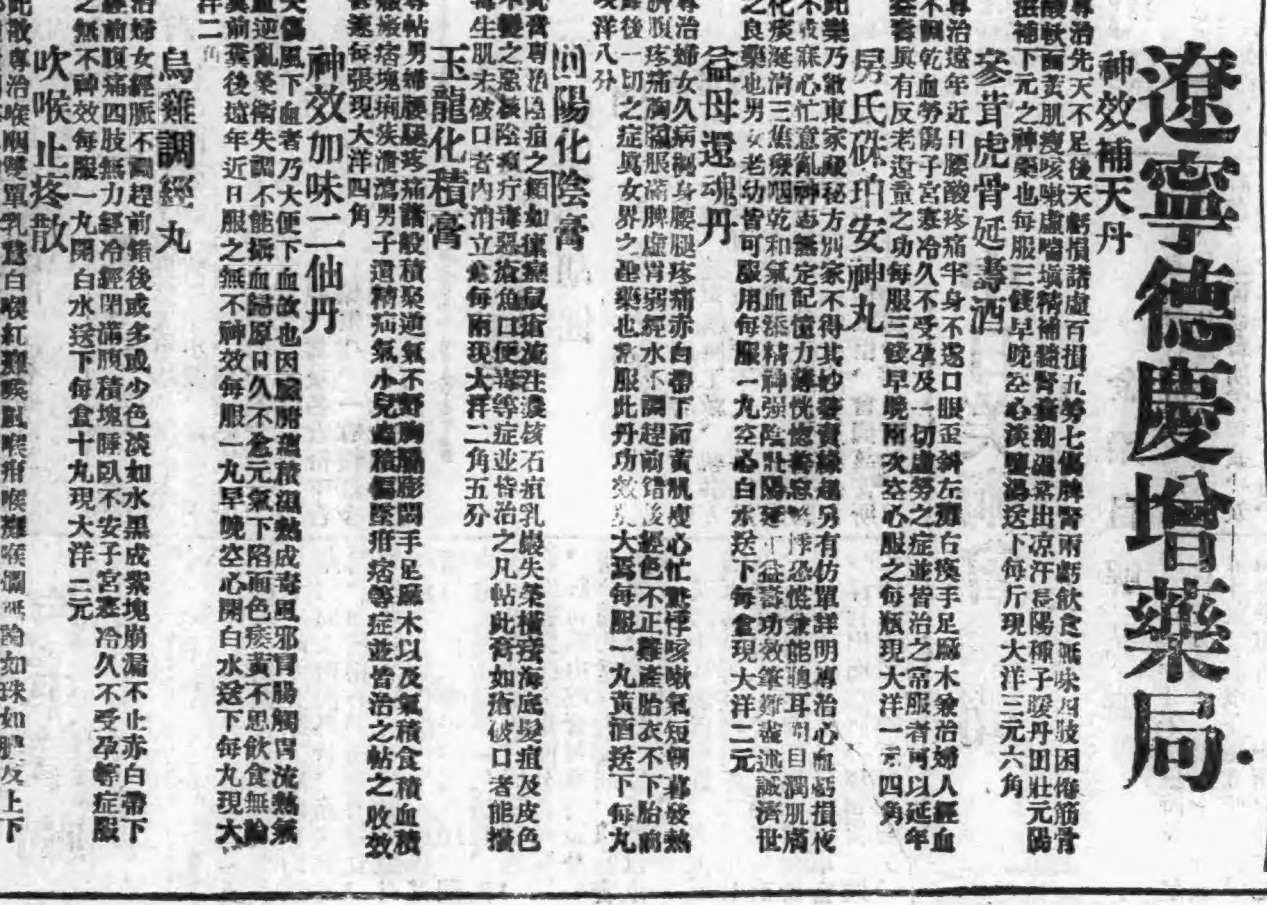 遼寧德慶增藥局
神效補天丹
專治先天不足後天虧損諸虛百損五勞七傷脾腎兩虧飲食無味四肢困倦筋骨
酸軟面黃肌瘦咳嗽虛喘塡精補髓腎囊潮濕常出凉汗長陽種子暖丹田壯元陽
滋補下元之神藥也每服三錢早晚空心淡鹽湯送下每斤現大洋三元六角
參茸虎骨延壽酒
專治遠年近日腰酸疼痛半身不遂口眼歪斜左癱右瘓手足麻木兼治婦人經血
不調乾血勞傷子宮寒冷久不受孕及一切虛勞之症並皆治之常服者可以延年
益壽眞有反老還童之功每服三錢早晚兩次空心服之每瓶現大洋一元四角
房氏硃珀安神丸
此藥乃敝東家藏秘方別家不得其妙若賣綠起另有仿單詳明專治心血虧損夜
不寐心忙意亂神志無定記憶力薄恍惚善忘驚悸恐慌兼能聰耳明目潤肌膚
化痰涎消三焦療咽乾和氣血添精神强陰壯陽延年益壽功效筆難盡述誠濟世
之良藥也男女老幼皆可服用每服一丸空心白水送下每盒現大洋二元
益母還魂丹
專治婦女久病纏身腰腿疼痛赤白帶下面黃肌瘦心忙驚悸咳嗽氣短朝暮發熱
臍腹疼痛胸膈脹滿脾虛胃弱經水不調趕前錯後經色不正難產胎衣不下胎前
產後一切之症眞女界之聖藥也常服此丹功效莫大焉每服一丸黃酒送下每丸
洋八分
回陽化陰膏
此膏專治陰疽之類如瘰癧鼠瘡流注痰核石疽乳巖失榮橫痃海底髮疽及皮色
不變之惡核陰疽疔毒惡瘡魚口便毒等症並皆治之凡帖此膏如瘡破口者能撥
毒生肌未破口者內消立愈每兩現大洋二角五分
玉龍化積膏
專帖男婦腰腿疼痛諸般積聚道氣不舒胸膈膨悶手足麻木以及氣積食積血積
癥瘕痞塊痢疾潰瀉男子遺精疝氣小兒蟲積偏墜疳痞等症並皆治之帖之收效
甚速每張現大洋四角
神效加味二仙丹
夫傷風下血者乃大便下血故也因臟腑蘊積濕熱成毒風邪胃腸觸胃流熱氣
血逆亂榮衛失調不能攝血歸原日久不愈元氣下陷面色痿黃不思飲食無論
糞前糞後遠年近日服之無不神效每服一丸早晚空心開白水送下每丸現大
洋二角
烏雞調經丸
治婦女經脈不調趕前錯後或多或少色淡如水黑成紫塊崩漏不止赤白帶下
經前腹痛四肢無力經冷經閉滿腹積塊睡臥不安子宮寒冷久不受孕等症服
之無不神效每服一丸開白水送下每盒十丸現大洋二元
吹喉止疼散
此散專治喉咽雙單乳蛾白喉紅